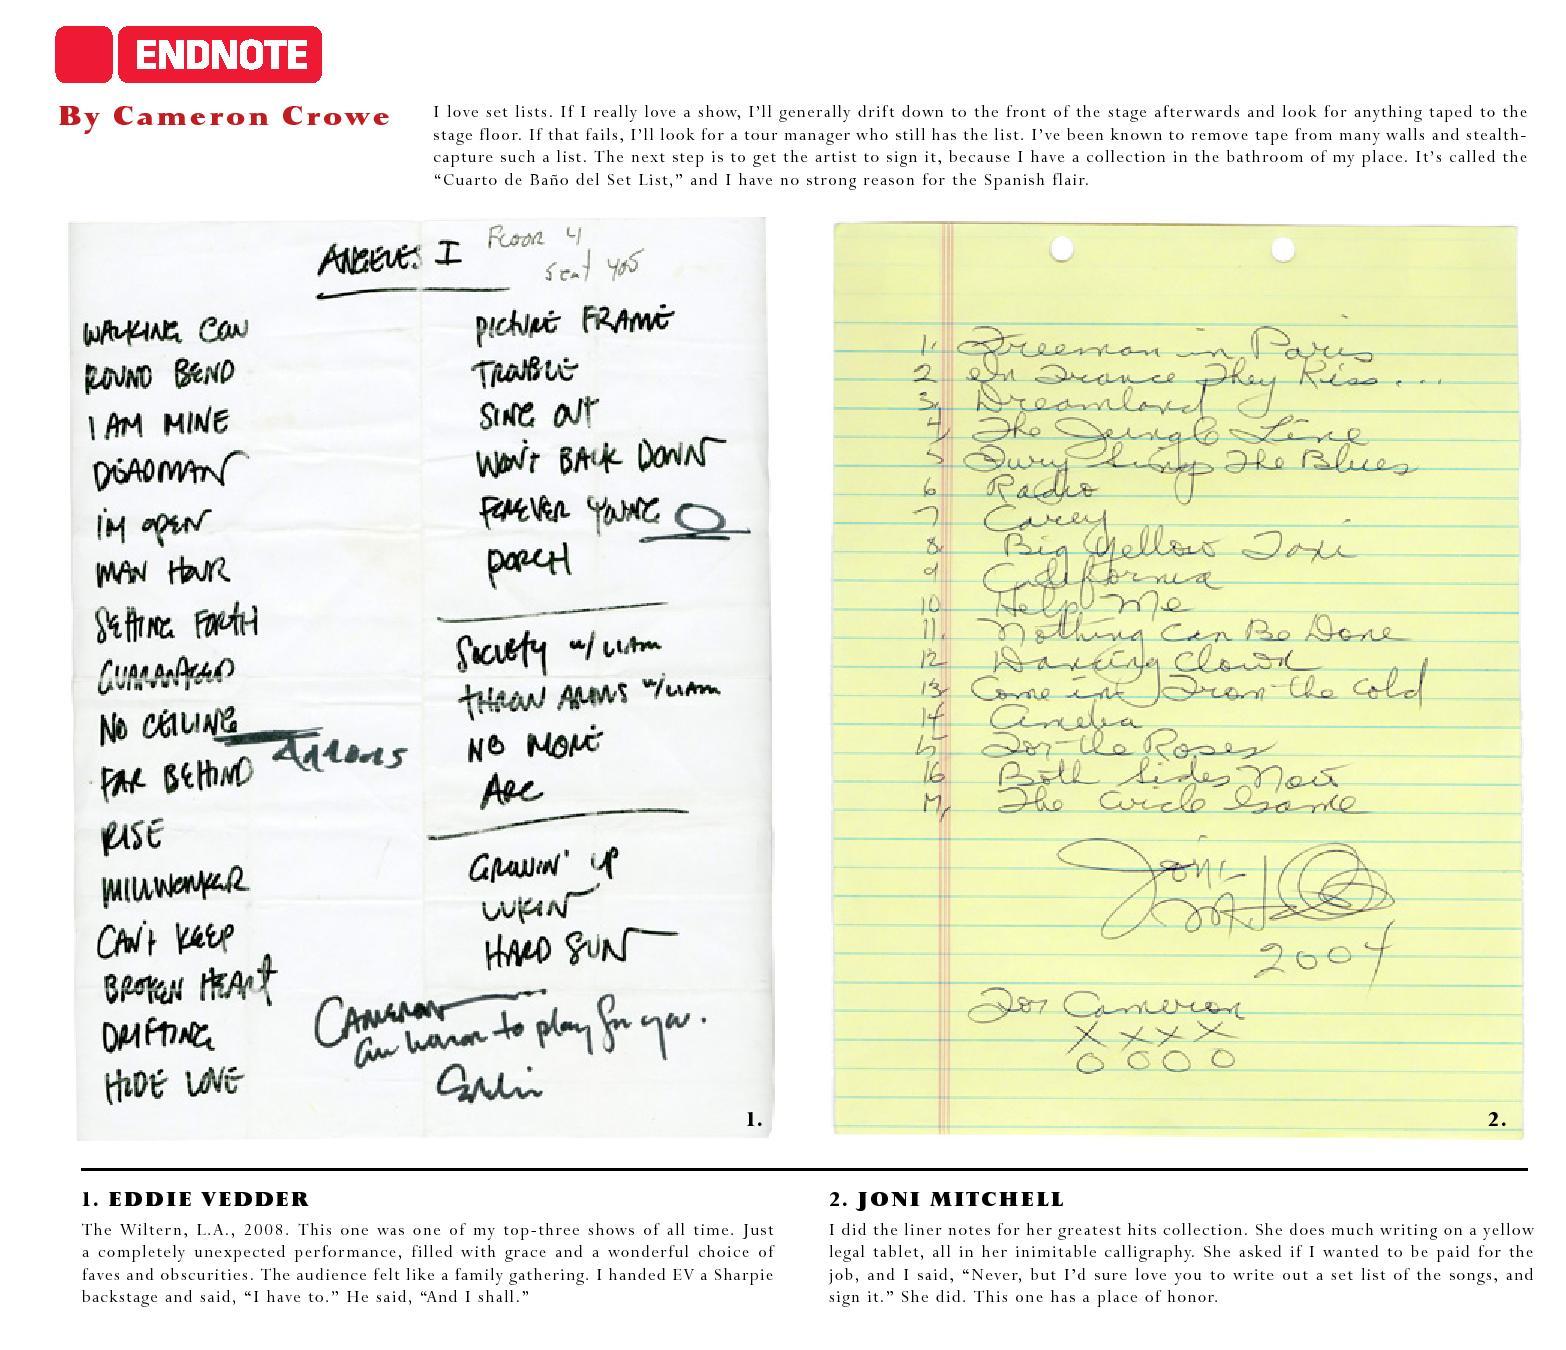 ENDNOTE
By Cameron Crowe
I love set lists. If I really love a show, I'll generally drift down to the front of the stage afterwards and look for anything taped to the
stage floor. If that fails, I'll look for a tour manager who still has the list. I've been known to remove tape from many walls and stealth-
capture such a list. The next step is to get the artist to sign it, because I have a collection in the bathroom of my place. It's called the
“Cuarto de Baño del Set List,” and I have no strong reason for the Spanish flair.
ANGELES I
Floor 4
Seat 405
WALKING COW
ROUND BEND
I AM MINE
DEADMAN
I'M OPEN
MAN HOUR
SETTING FORTH
GUARANTEED
NO CEILING
ARROWS
FAR BEHIND
RISE
MILLWORKER
CAN'T KEEP
BROKEN HEART
DRIFTING
HIDE LOVE
PICTURE FRAME
TROUBLE
SING OUT
WON'T BACK DOWN
FOREVER YOUNG
PORCH
SOCIETY w/ LIAM
THROW ARMS w/ LIAM
NO MORE
ARC
GROWIN' UP
LUKIN
HARD SUN
CAMERON
An honor to play for you.
1.
1. Freeman in Paris
2 In France They Kiss....
3. Dreamland
4. The Jungle Line
5 Fury Sings The Blues
6 Radio
7 Carey
8. Big Yellow Taxi
9 California
10 Help Me
11. Nothing Can Be Done
12 Dancing Clown
13. Come in From the Cold
14 Amelia
15 For the Roses
16 Both Sides Now
17, The Circle Game
Joni Mitchell
2004
For Cameron
X X X X
O O O O
2.
1. EDDIE VEDDER
The Wiltern, L.A., 2008. This one was one of my top-three shows of all time. Just
a completely unexpected performance, filled with grace and a wonderful choice of
faves and obscurities. The audience felt like a family gathering. I handed EV a Sharpie
backstage and said, “I have to.” He said, “And I shall.”
2. JONI MITCHELL
I did the liner notes for her greatest hits collection. She does much writing on a yellow
legal tablet, all in her inimitable calligraphy. She asked if I wanted to be paid for the
job, and I said, “Never, but I'd sure love you to write out a set list of the songs, and
sign it.” She did. This one has a place of honor.